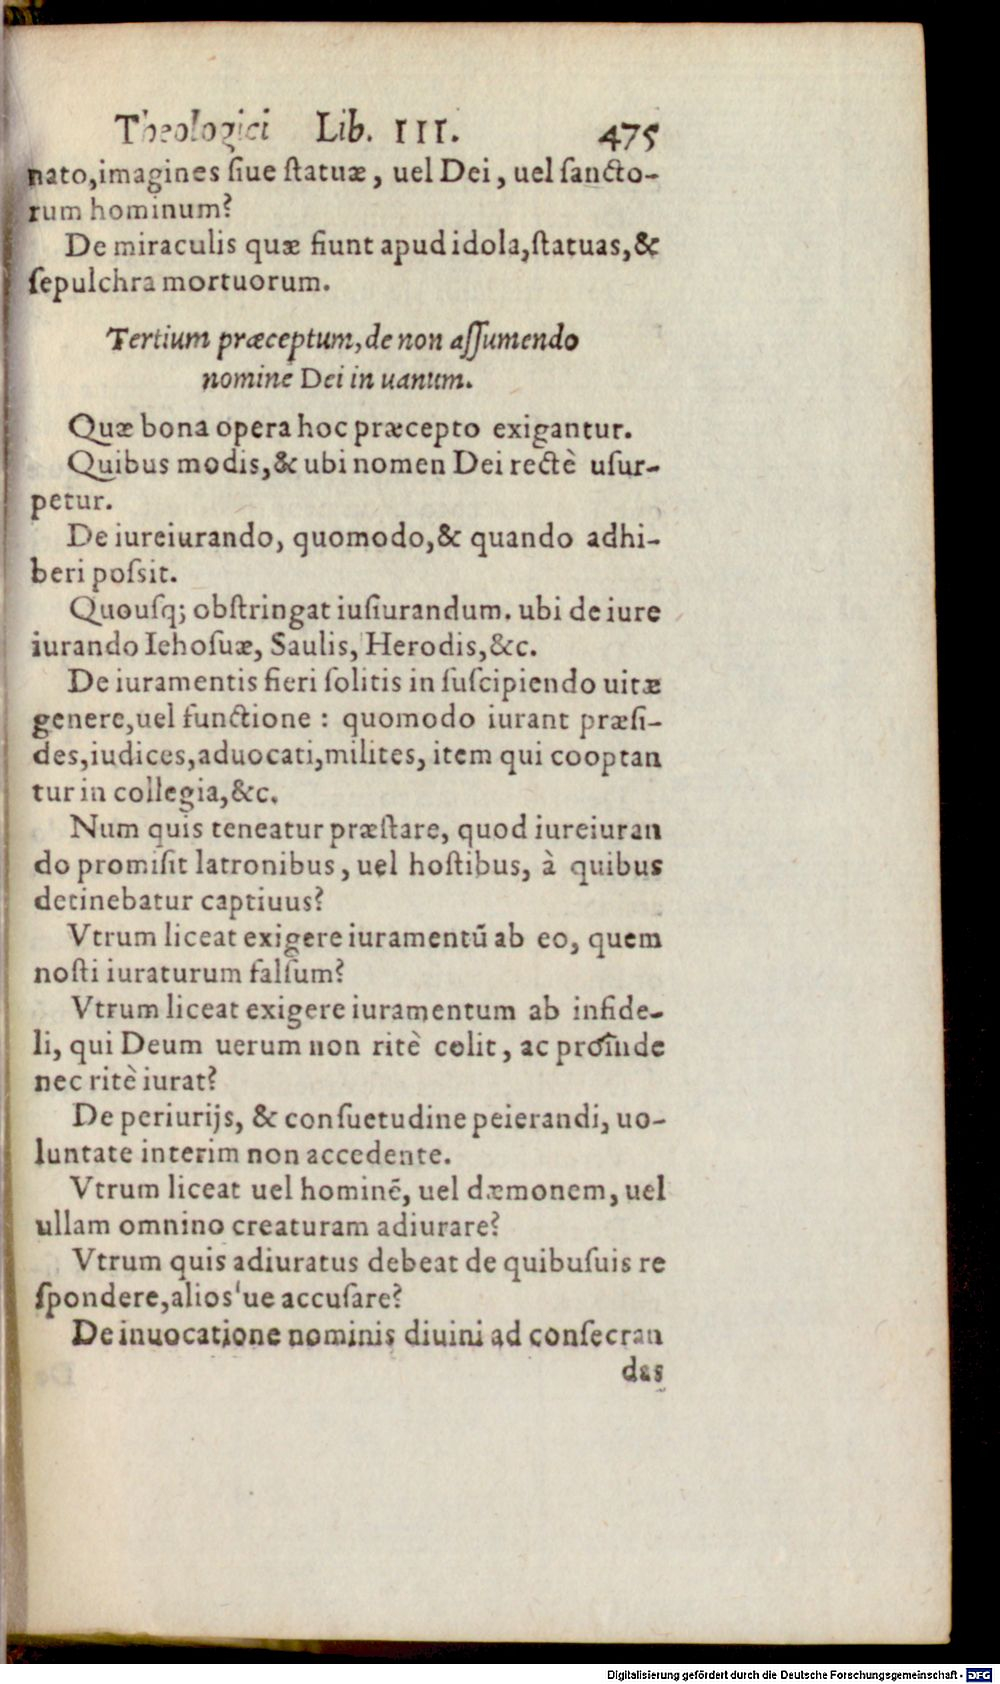 Theologici Lib. III. 475
nato,imagines ſiue ſtatuæ, uel Dei, uel ſancto-
rum hominum?
De miraculis quæ fiunt apud idola,ſtatuas,&
ſepulchra mortuorum.
Tertium præceptum, de non aſſumendo
nomine Dei in uanum.
Quæ bona opera hoc præcepto exigantur.
Quibus modis,& ubi nomen Dei rectè uſur-
petur.
De iureiurando, quomodo,& quando adhi-
beri poſsit.
Quouſq; obſtringat iuſiurandum. ubi de iure
iurando Iehoſuæ, Saulis, Herodis,&c.
De iuramentis fieri ſolitis in ſuſcipiendo uitæ
genere,uel functione : quomodo iurant præſi-
des,iudices,aduocati,milites, item qui cooptan
tur in collegia,&c.
Num quis teneatur præſtare, quod iureiuran
do promiſit latronibus, uel hoſtibus, à quibus
detinebatur captiuus?
Vtrum liceat exigere iuramentũ ab eo, quem
noſti iuraturum falſum?
Vtrum liceat exigere iuramentum ab infide-
li, qui Deum uerum non ritè colit, ac proinde
nec ritè iurat?
De periurijs, & conſuetudine peierandi, uo-
luntate interim non accedente.
Vtrum liceat uel hominẽ, uel dæmonem, uel
ullam omnino creaturam adiurare?
Vtrum quis adiuratus debeat de quibuſuis re
ſpondere,alios'ue accuſare?
De inuocatione nominis diuini ad conſecran
das
Digitalisierung gefördert durch die Deutsche Forschungsgemeinschaft - DFG